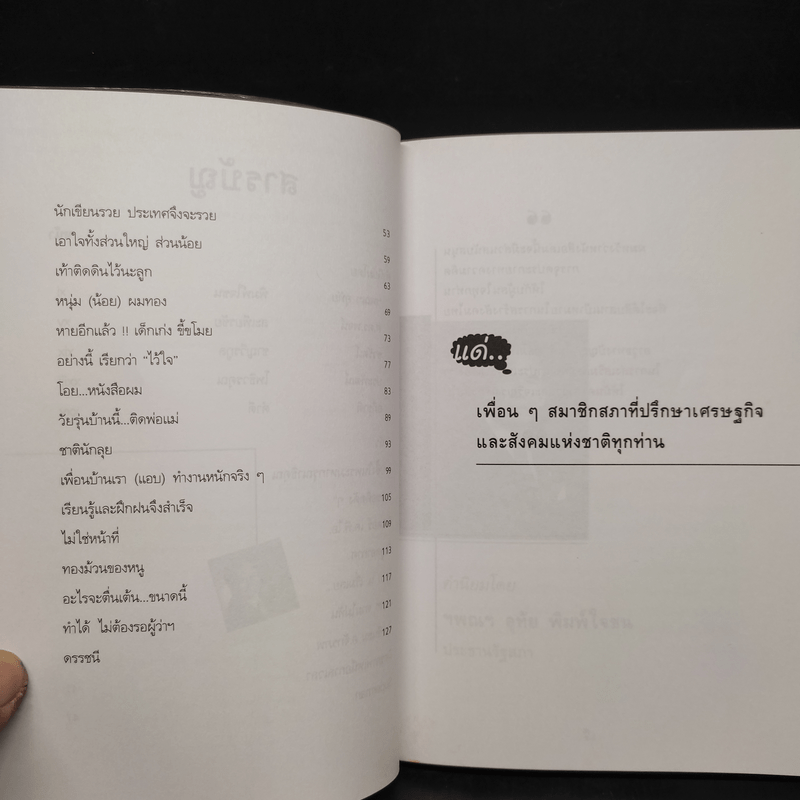 นักเขียนรวย ประเทศจึงจะรวย 53
เอาใจทั้งส่วนใหญ่ ส่วนน้อย 59
เท้าติดดินไว้นะลูก 63
หนุ่ม (น้อย) ผมทอง 69
หายอีกแล้ว !! เด็กเก่ง ขี้ขโมย 73
อย่างนี้ เรียกว่า "ไว้ใจ" 77
โอย...หนังสือผม 83
วัยรุ่นบ้านนี้...ติดพ่อแม่ 89
ชาตินักลุย 93
เพื่อนบ้านเรา (แอบ) ทำงานหนักจริง ๆ 99
เรียนรู้และฝึกฝนจึงสำเร็จ 105
ไม่ใช่หน้าที่ 109
ทองม้วนของหนู 113
อะไรจะตื่นเต้น...ขนาดนี้ 117
ทำได้ ไม่ต้องรอผู้ว่าฯ 121
ดรรชนี 127
แด่..
เพื่อน ๆ สมาชิกสภาที่ปรึกษาเศรษฐกิจ
และสังคมแห่งชาติทุกท่าน